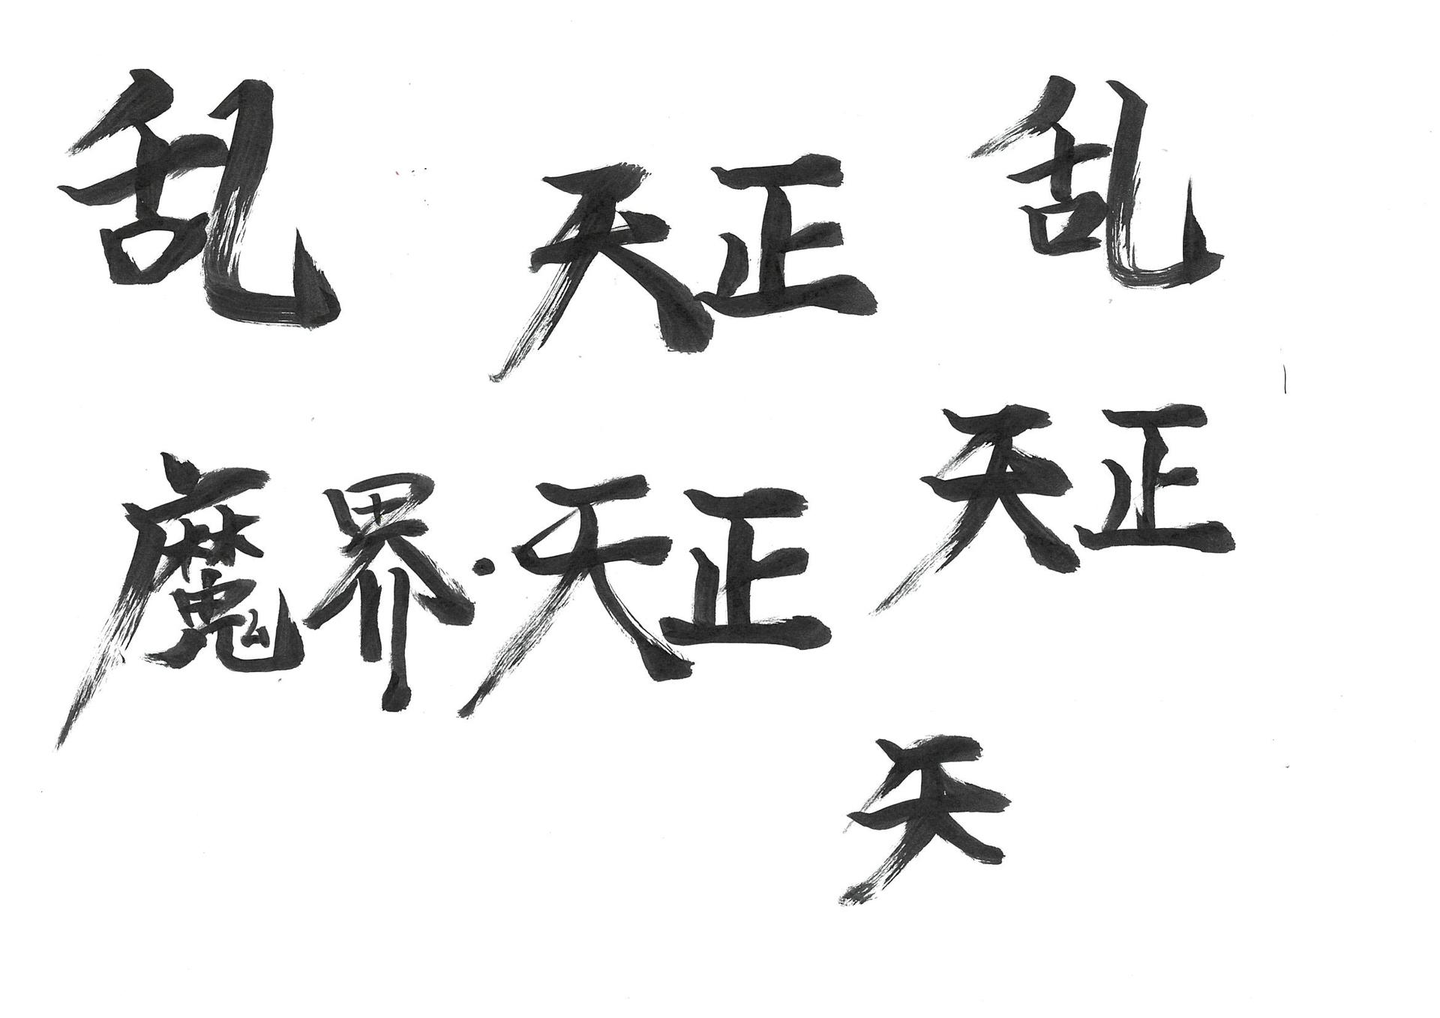 乱 天正 乱
魔界・天正 天正
天